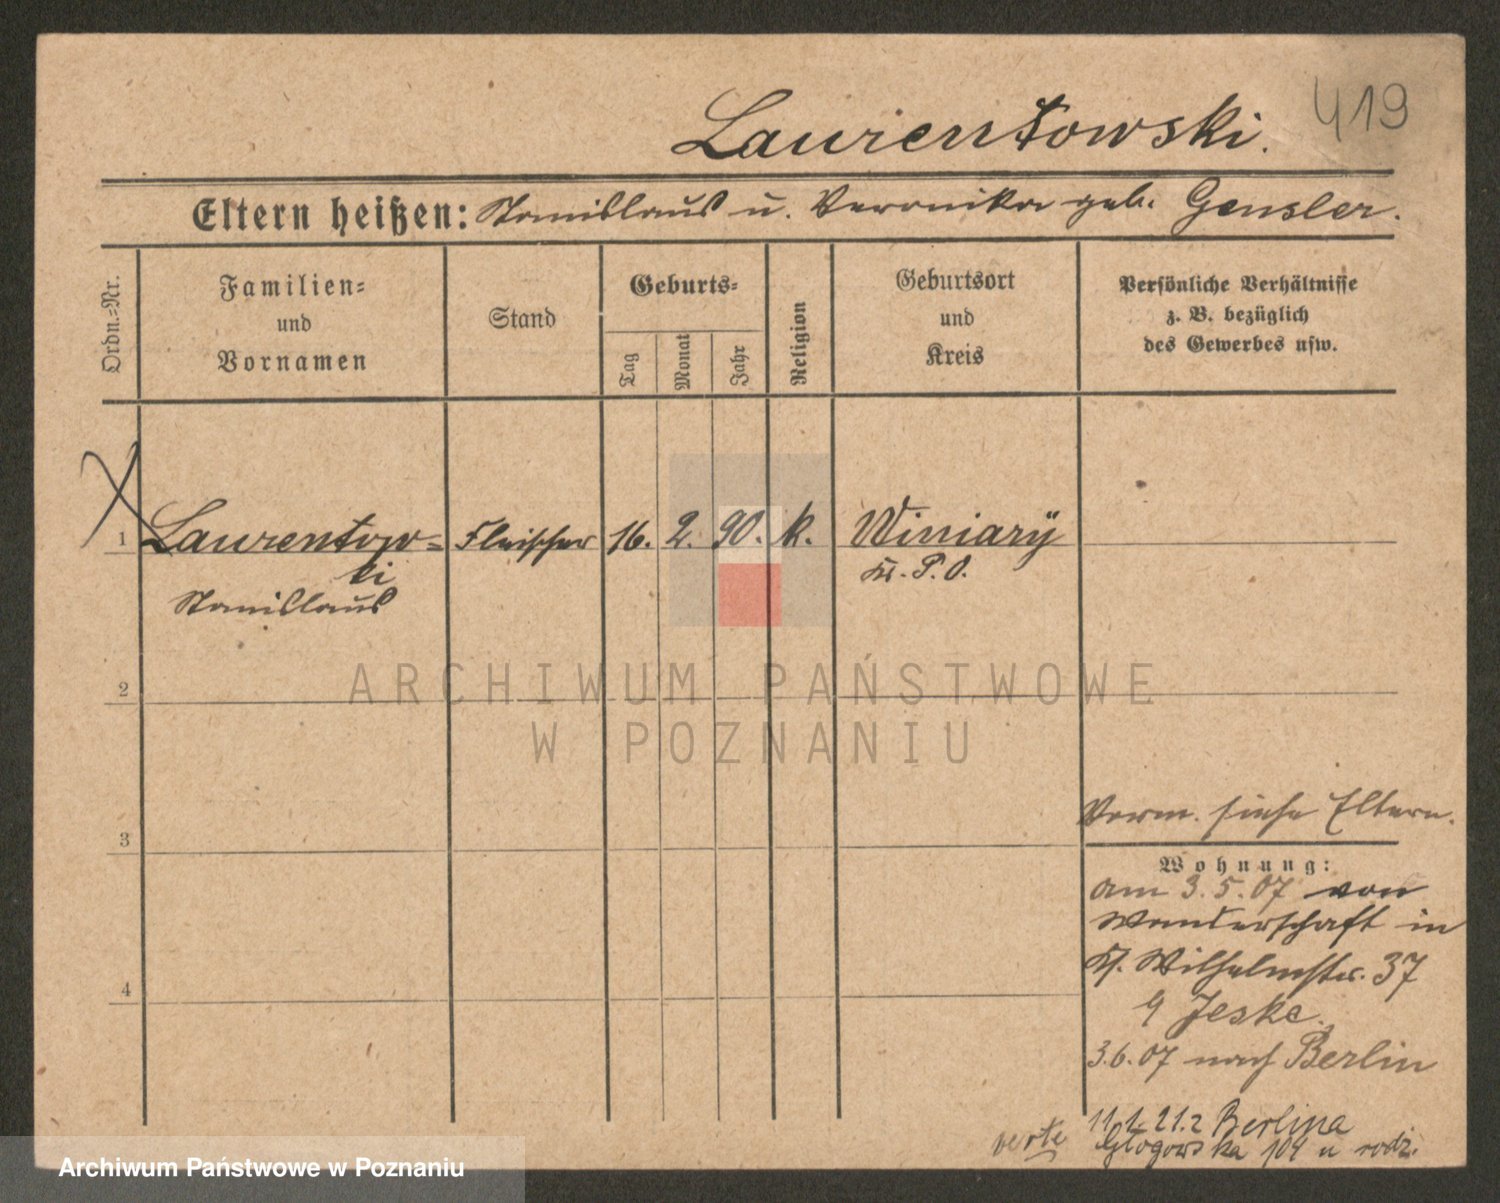 419
Laurentowski.
Eltern heißen: Stanislaus u. Veronika geb. Gensler.
Ordn.=Nr.
Familien=
und
Vornamen
Stand
Geburts=
Tag
Monat
Jahr
Religion
Geburtsort
und
Kreis
Persönliche Verhältnisse
z. B. bezüglich
des Gewerbes usw.
1 Laurentow= Fleischer 16. 2. 90. k. Winiary
ki Kr. P. O.
Stanislaus
2
ARCHIWUM PAŃSTWOWE
W POZNANIU
3
Verm. siehe Eltern.
Wohnung:
am 3.5.07 von
Wanderschaft in
Wilhelmstr. 37
4
Jeske.
3.6.07 nach Berlin
11.1.21. z Berlina
verte Głogowska 104 u rodz.
Archiwum Państwowe w Poznaniu